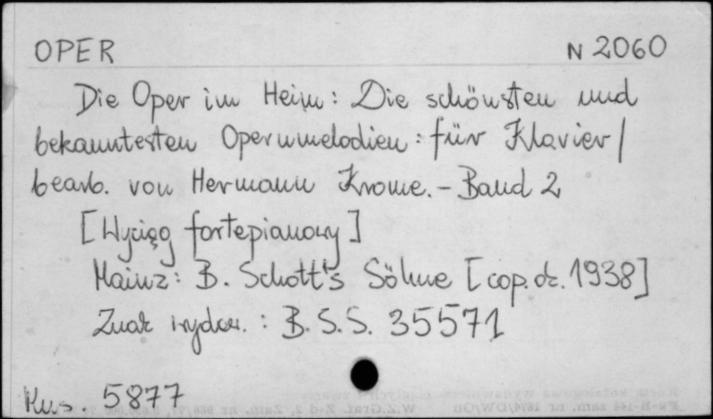 OPER N 2060
Die Oper im Heim: Die schönsten und
bekanntesten Opernmelodien: für Klavier /
bearb. von Hermann Krome. - Band 2
[Wyciąg fortepianowy]
Mainz: B. Schott's Söhne [cop. 1938]
Znak wydaw.: B.S.S. 35571
5877